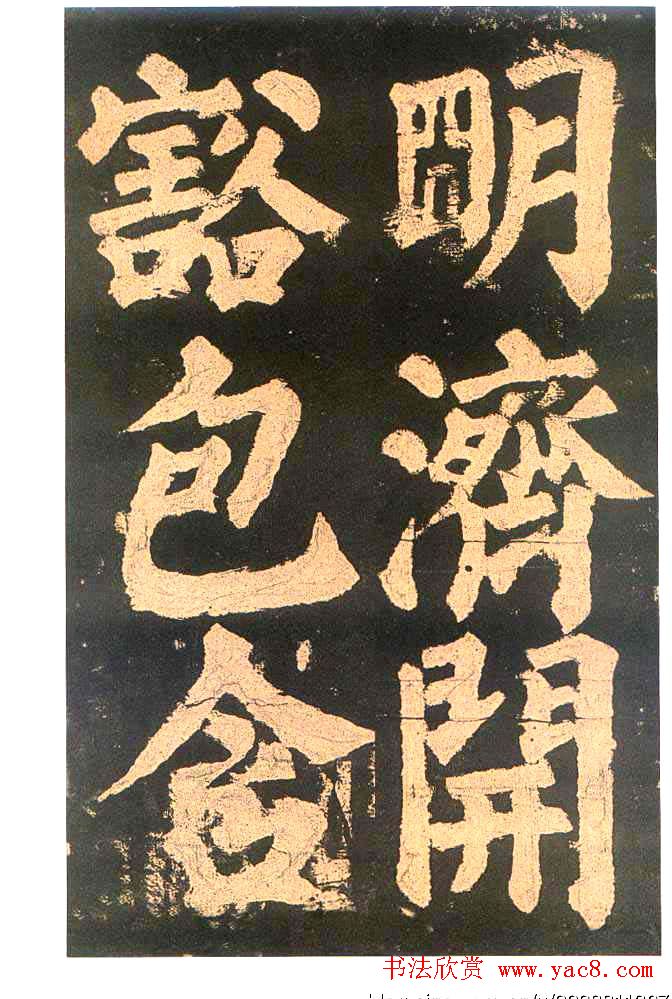 明濟開
豁包含
书法欣赏 www.yac8.com